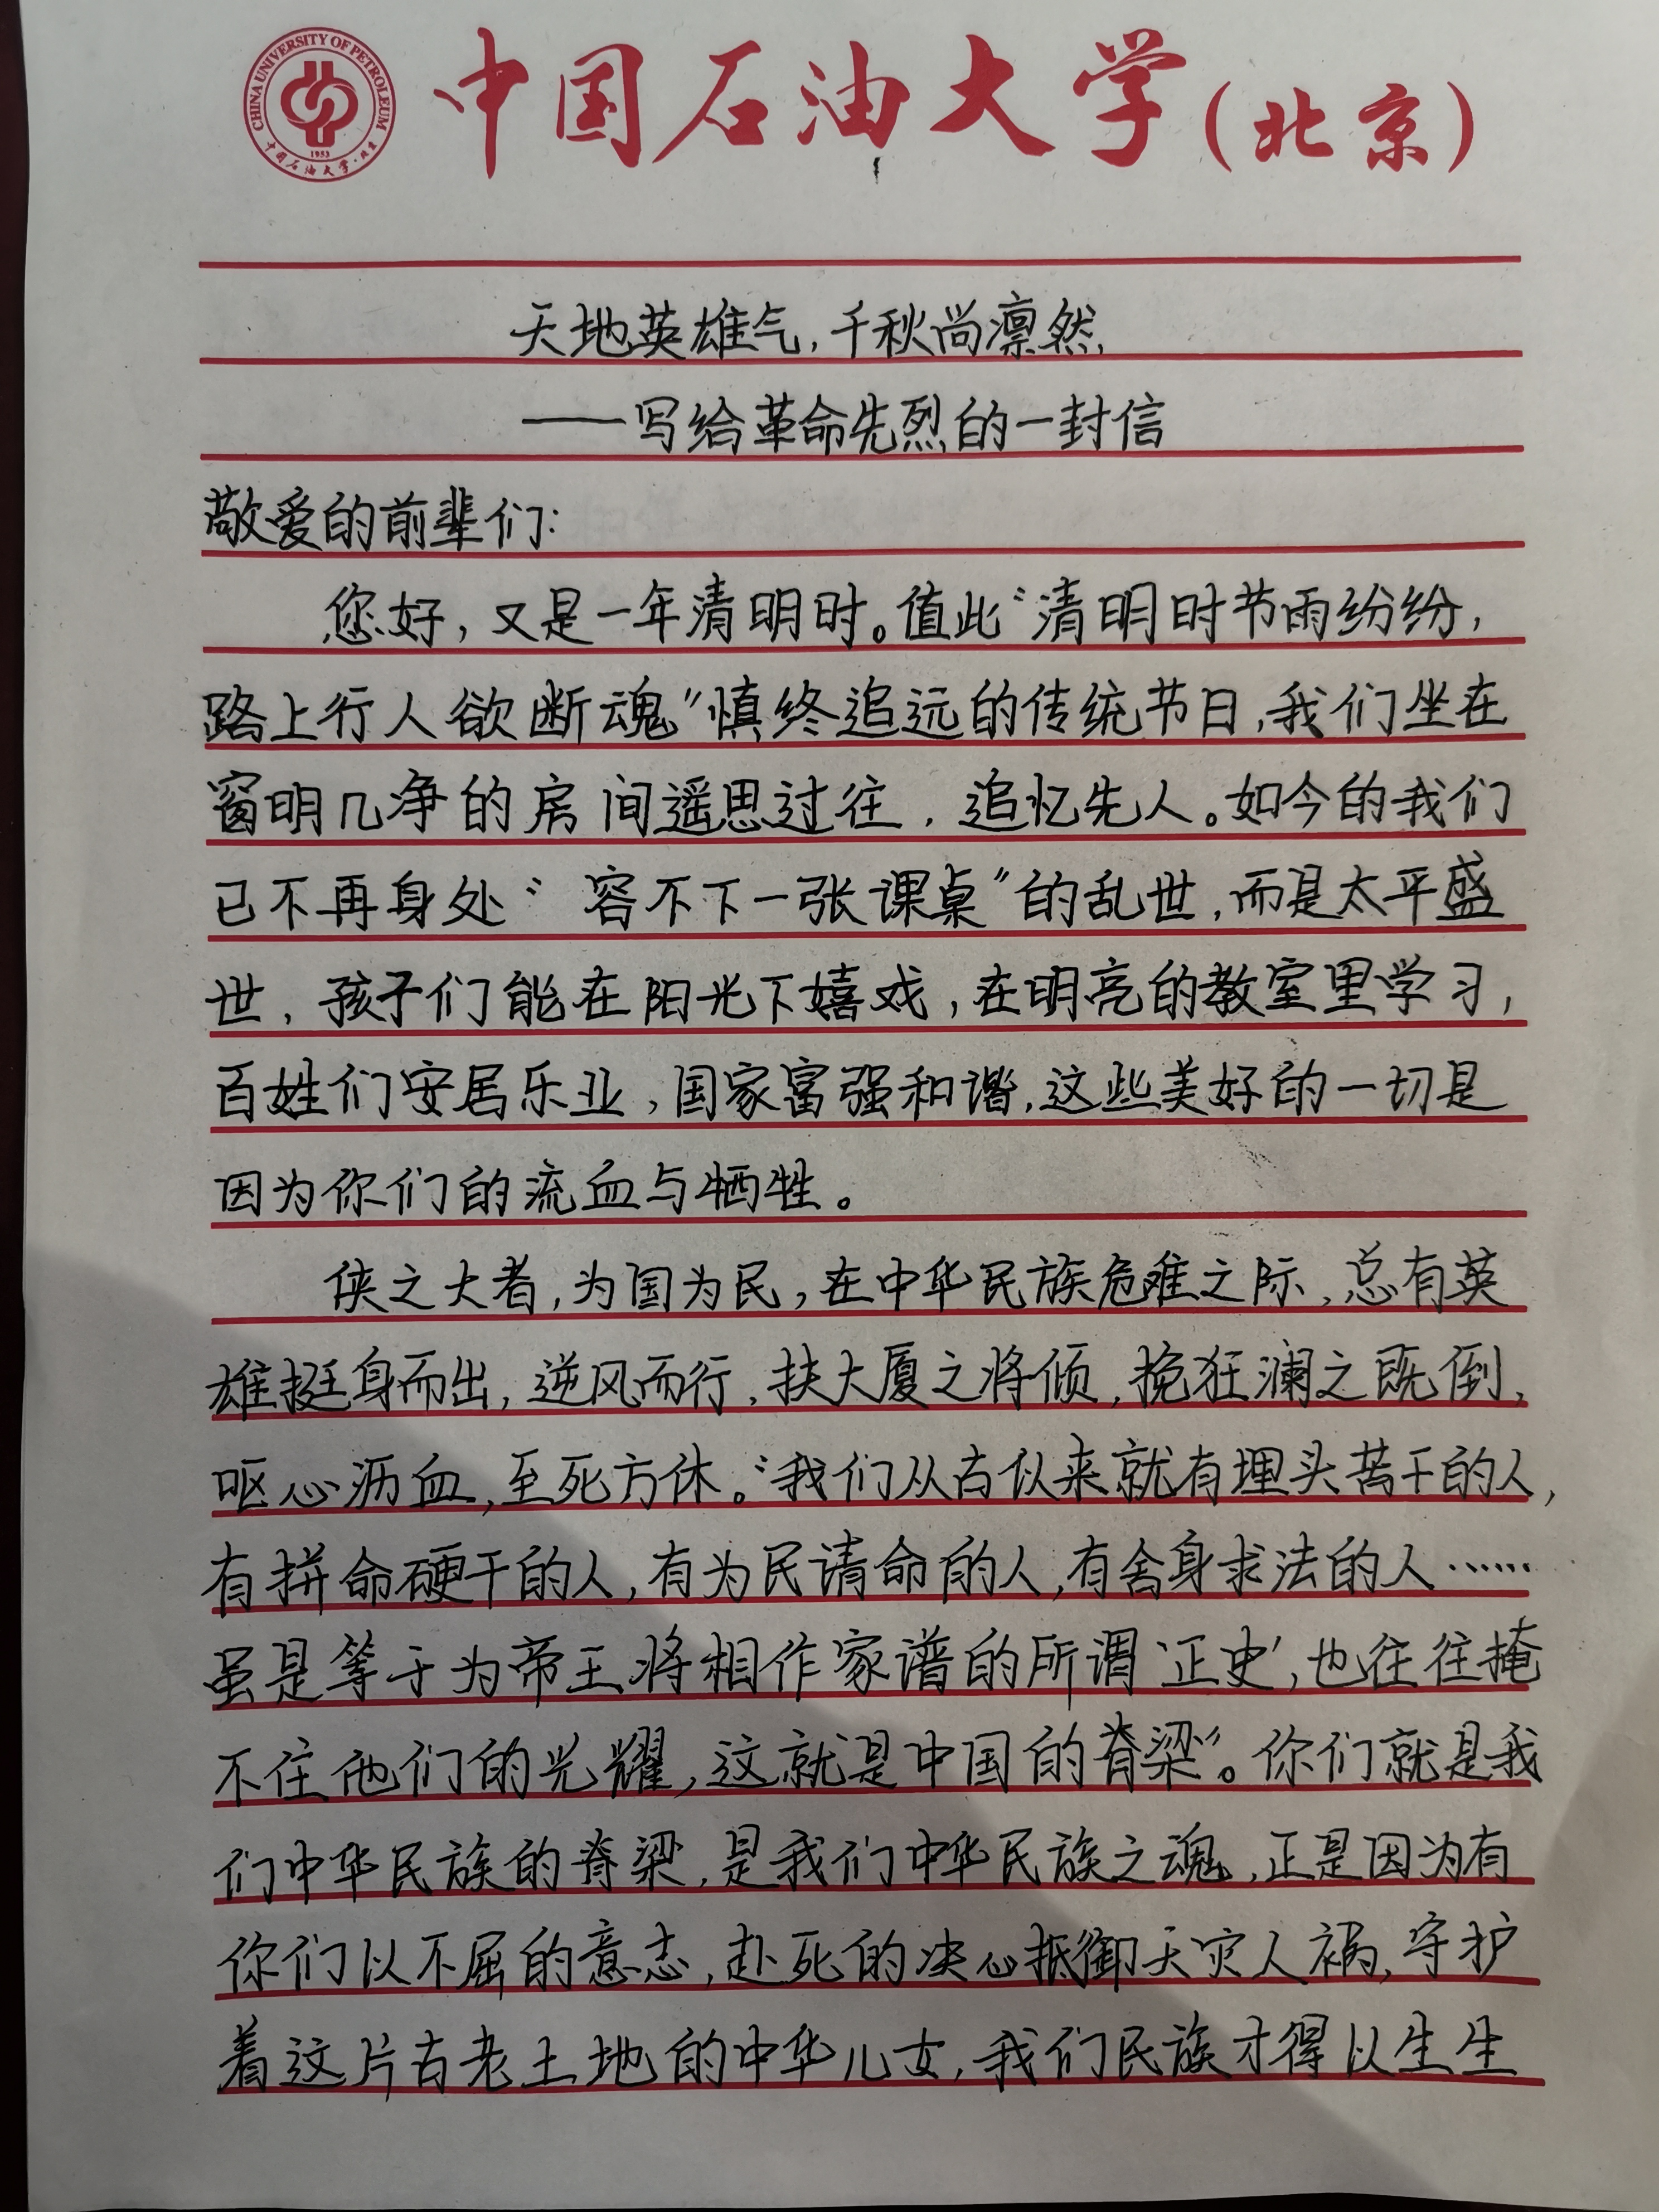 CHINA UNIVERSITY OF PETROLEUM
1953
中国石油大学·北京
中国石油大学(北京)
天地英雄气,千秋尚凛然
——写给革命先烈的一封信
敬爱的前辈们:
您好,又是一年清明时。值此“清明时节雨纷纷,
路上行人欲断魂”慎终追远的传统节日,我们坐在
窗明几净的房间遥思过往,追忆先人。如今的我们
已不再身处“容不下一张课桌”的乱世,而是太平盛
世,孩子们能在阳光下嬉戏,在明亮的教室里学习,
百姓们安居乐业,国家富强和谐,这些美好的一切是
因为你们的流血与牺牲。
侠之大者,为国为民,在中华民族危难之际,总有英
雄挺身而出,逆风而行,扶大厦之将倾,挽狂澜之既倒,
呕心沥血,至死方休。“我们从古似来就有埋头苦干的人,
有拼命硬干的人,有为民请命的人,有舍身求法的人……
虽是等于为帝王将相作家谱的所谓‘正史’,也往往掩
不住他们的光耀,这就是中国的脊梁”。你们就是我
们中华民族的脊梁,是我们中华民族之魂,正是因为有
你们以不屈的意志,赴死的决心抵御天灾人祸,守护
着这片古老土地的中华儿女,我们民族才得以生生